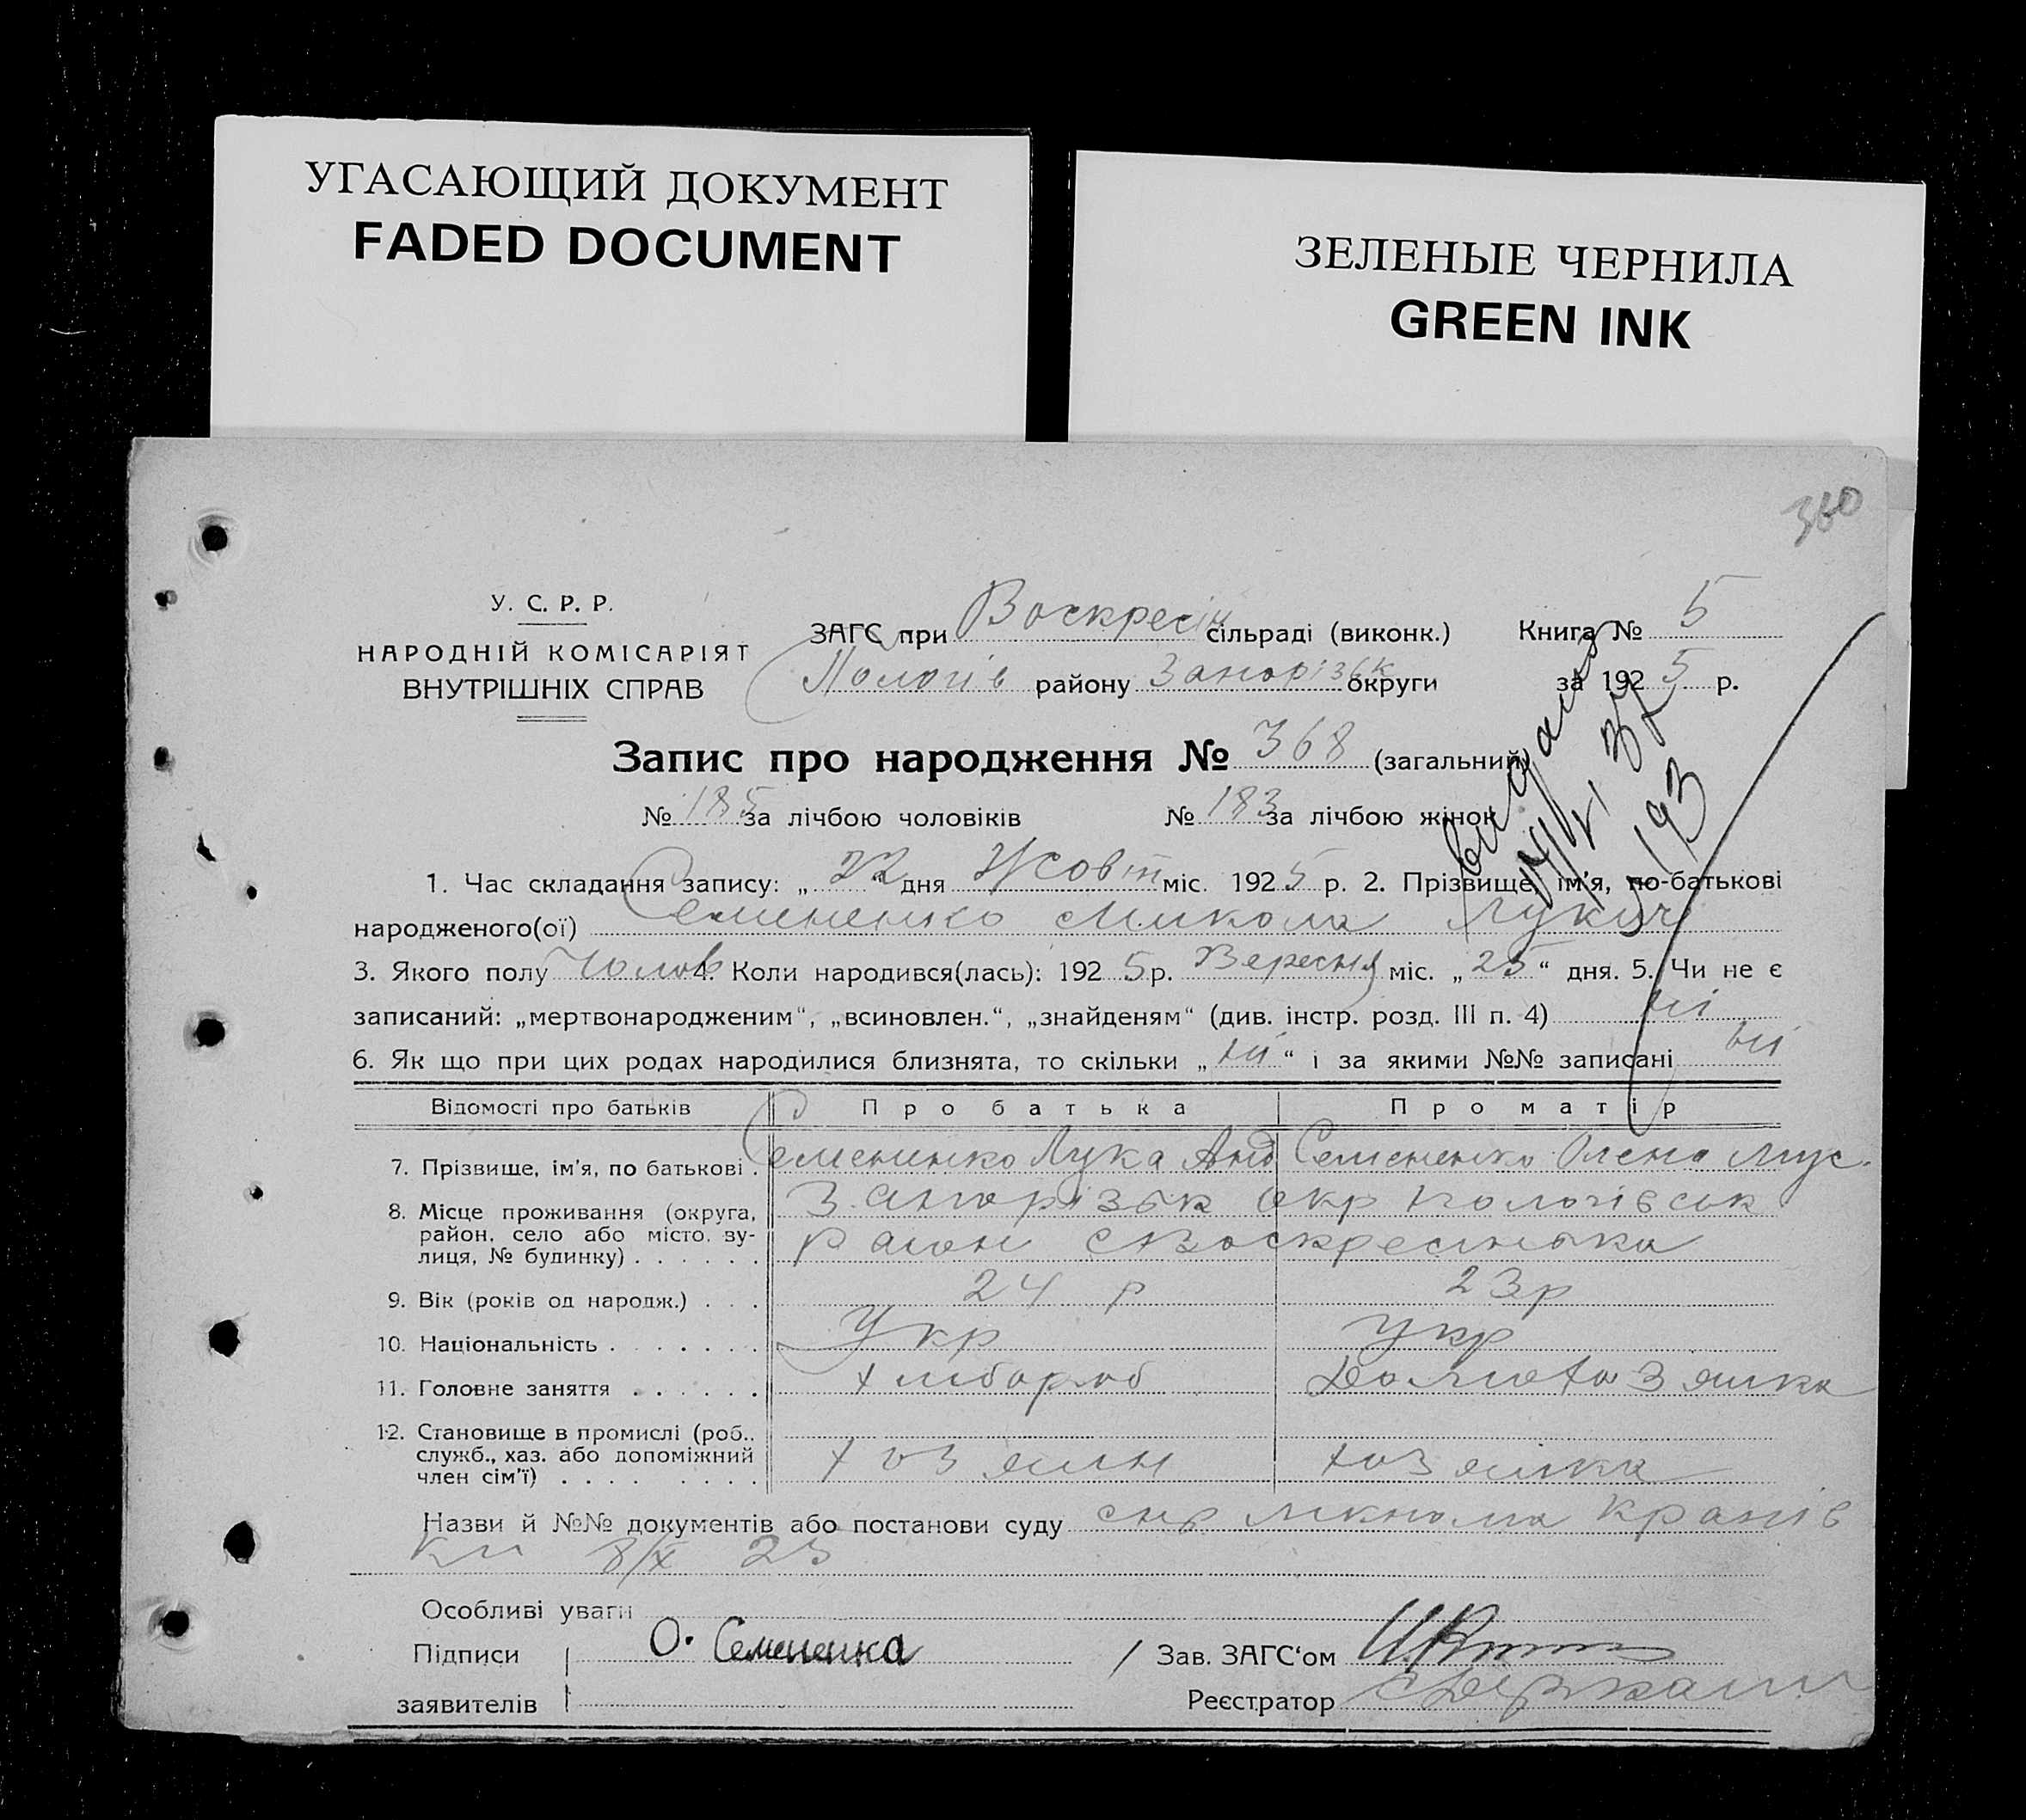 УГАСАЮЩИЙ ДОКУМЕНТ
FADED DOCUMENT
ЗЕЛЕНЫЕ ЧЕРНИЛА
GREEN INK
360
У. С. Р. Р.
НАРОДНІЙ КОМІСАРІЯТ
ВНУТРІШНІХ СПРАВ
ЗАГС при Воскресін сільраді (виконк.) Книга № 5
Пологів району Запорізьк округи за 1925 р.
Запис про народження № 368 (загальний)
№ 185 за лічбою чоловіків № 183 за лічбою жінок
видано
1. Час складання запису: „22" дня Жовт міс. 1925 р. 2. Прізвище, ім'я, по-батькові
народженого(ої) Семененко Микола Лукич
3. Якого полу Чолов 4. Коли народився(лась): 1925 р. Вересня міс. „25“ дня. 5. Чи не є
записаний: „мертвонародженим“, „всиновлен.“, „знайденям“ (див. інстр. розд. III п. 4) ні
6. Як що при цих родах народилися близнята, то скільки „ні“ і за якими №№ записані ні
Відомості про батьків Про батька Про матір
7. Прізвище, ім'я, по батькові . Семениико Лука Анд Семененко Олена Мус.
8. Місце проживання (округа, Запорізьк окр Пологівськ
район, село або місто, ву-
лиця, № будинку) . . . . . . район с Воскресінька
9. Вік (років од народж.) . . . 24 р 23 р
10. Національність . . . . . . . Укр Укр
11. Головне заняття . . . . . . хлібороб Домохозяйка
12. Становище в промислі (роб.,
служб., хаз. або допоміжний
член сім'ї) . . . . . . . . . хозяин хозяйка
Назви й №№ документів або постанови суду
8/X 25
Особливі уваги
Підписи О. Семененка Зав. ЗАГС‘ом
заявителів Реєстратор